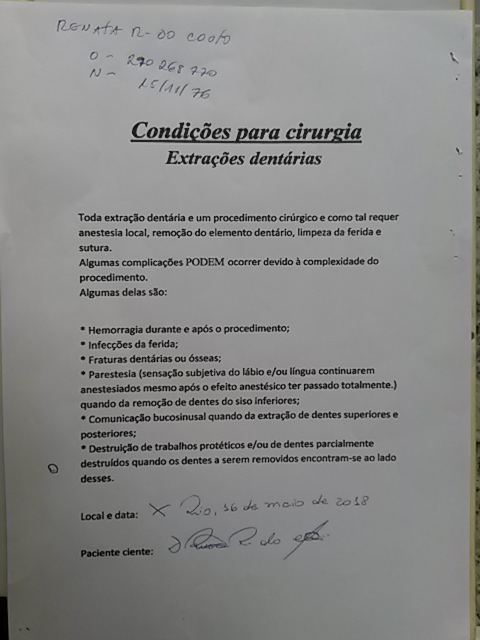 RENATA R. DO COUTO
O - 270 268 770
N - 15/11/76
Condições para cirurgia
Extrações dentárias
Toda extração dentária e um procedimento cirúrgico e como tal requer
anestesia local, remoção do elemento dentário, limpeza da ferida e
sutura.
Algumas complicações PODEM ocorrer devido à complexidade do
procedimento.
Algumas delas são:
* Hemorragia durante e após o procedimento;
* Infecções da ferida;
* Fraturas dentárias ou ósseas;
* Parestesia (sensação subjetiva do lábio e/ou língua continuarem
anestesiados mesmo após o efeito anestésico ter passado totalmente.)
quando da remoção de dentes do siso inferiores;
* Comunicação bucosinusal quando da extração de dentes superiores e
posteriores;
* Destruição de trabalhos protéticos e/ou de dentes parcialmente
destruídos quando os dentes a serem removidos encontram-se ao lado
desses.
Local e data: X Rio, 16 de maio de 2018
Paciente ciente: R. do